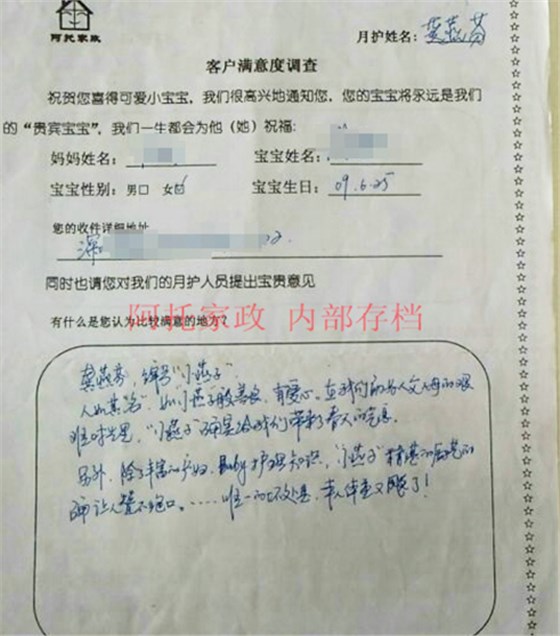 阿托家政
月护姓名：龚燕芬
客户满意度调查
祝贺您喜得可爱小宝宝，我们很高兴地通知您，您的宝宝将永远是我们
的“贵宾宝宝”，我们一生都会为他（她）祝福：
妈妈姓名： 宝宝姓名：
宝宝性别：男□ 女☑ 宝宝生日：09.6.25
您的收件详细地址
深
同时也请您对我们的月护人员提出宝贵意见
阿托家政 内部存档
有什么是您认为比较满意的地方？
龚燕芬，编号“小燕子”
人如其名，如小燕子般善良，有爱心。在我们初为人父人母的艰
难时光里，“小燕子”确是给我们带来了春天的气息。
另外，除了丰富的产妇、Baby护理知识，“小燕子”精湛的厨艺
确让人赞不绝口。……唯一的坏处是，本人体重又飙了！